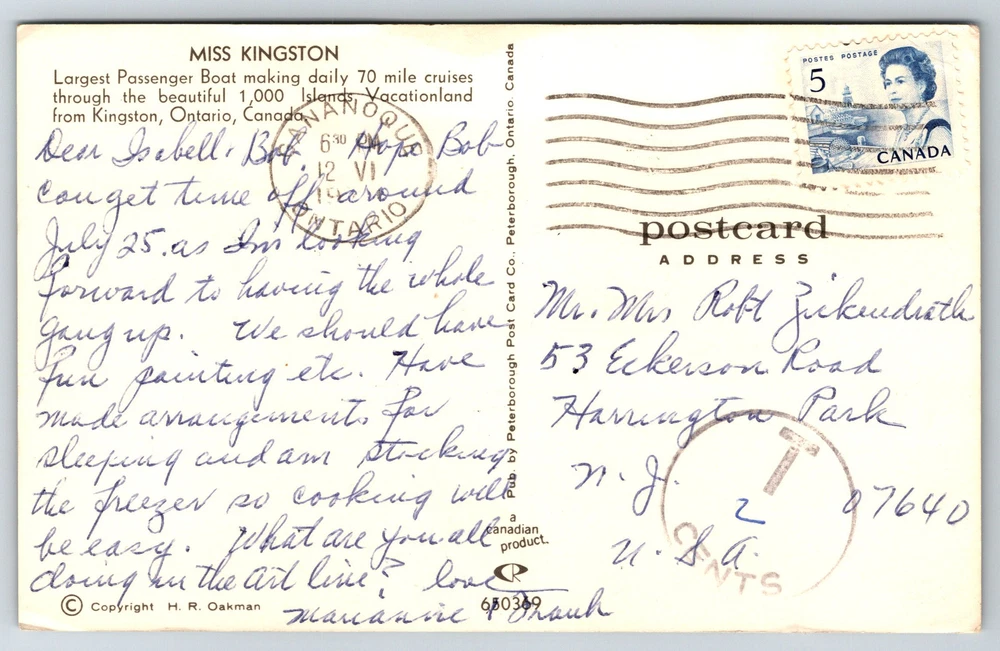 MISS KINGSTON
Largest Passenger Boat making daily 70 mile cruises
through the beautiful 1,000 Islands Vacationland
from Kingston, Ontario, Canada.
Dear Isabell, Bob. Hope Bob
can get time off around
July 25. as Im looking
forward to having the whole
gang up. We should have
fun painting etc. Have
made arrangements for
sleeping and am stocking
the freezer so cooking will
be easy. What are you all
doing in the art line? love
Marianne &
© Copyright H. R. Oakman
GANANOQUE
6 30 PM
12 VI
19
ONTARIO
Pub. by Peterborough Post Card Co., Peterborough, Ontario, Canada
a
canadian
product.
CR
650369
POSTES POSTAGE
5
CANADA
postcard
ADDRESS
Mr. Mrs Robt Zickendrath
53 Eckerson Road
Harrington Park
N. J. 07640
U. S. A.
T
2
CENTS